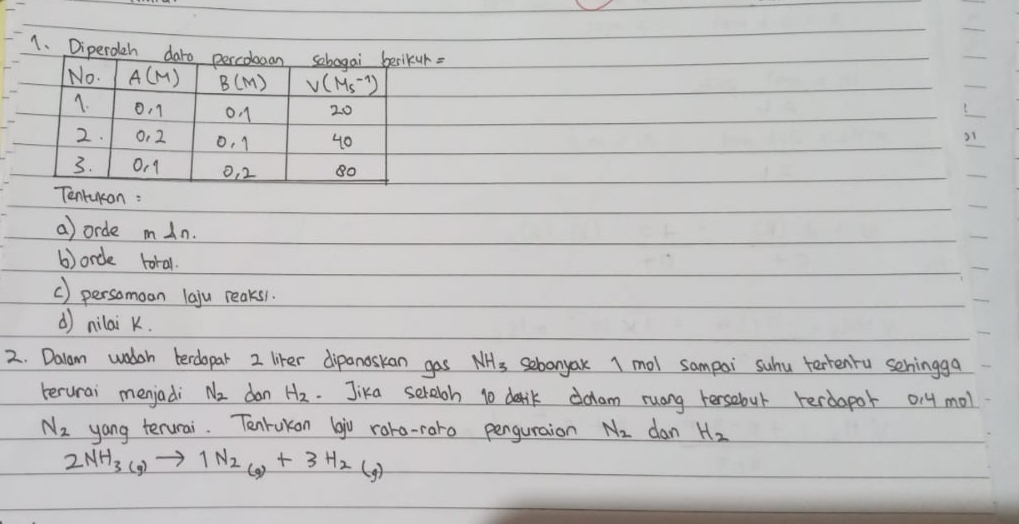 1. Diperoleh data percobaan sebagai berikut =
No. A(M) B(M) V(Ms⁻¹)
1. 0,1 0,1 20
2. 0,2 0,1 40
3. 0,1 0,2 80
Tentukan :
a) orde m dn.
b) orde total.
c) persamaan laju reaksi.
d) nilai K.
2. Dalam wadah terdapat 2 liter dipanaskan gas NH₃ sebanyak 1 mol sampai suhu tertentu sehingga
terurai menjadi N₂ dan H₂. Jika setelah 10 detik dalam ruang tersebut terdapat 0,4 mol
N₂ yang terurai. Tentukan laju rata-rata penguraian N₂ dan H₂
2NH₃ (g) → 1 N₂ (g) + 3 H₂ (g)